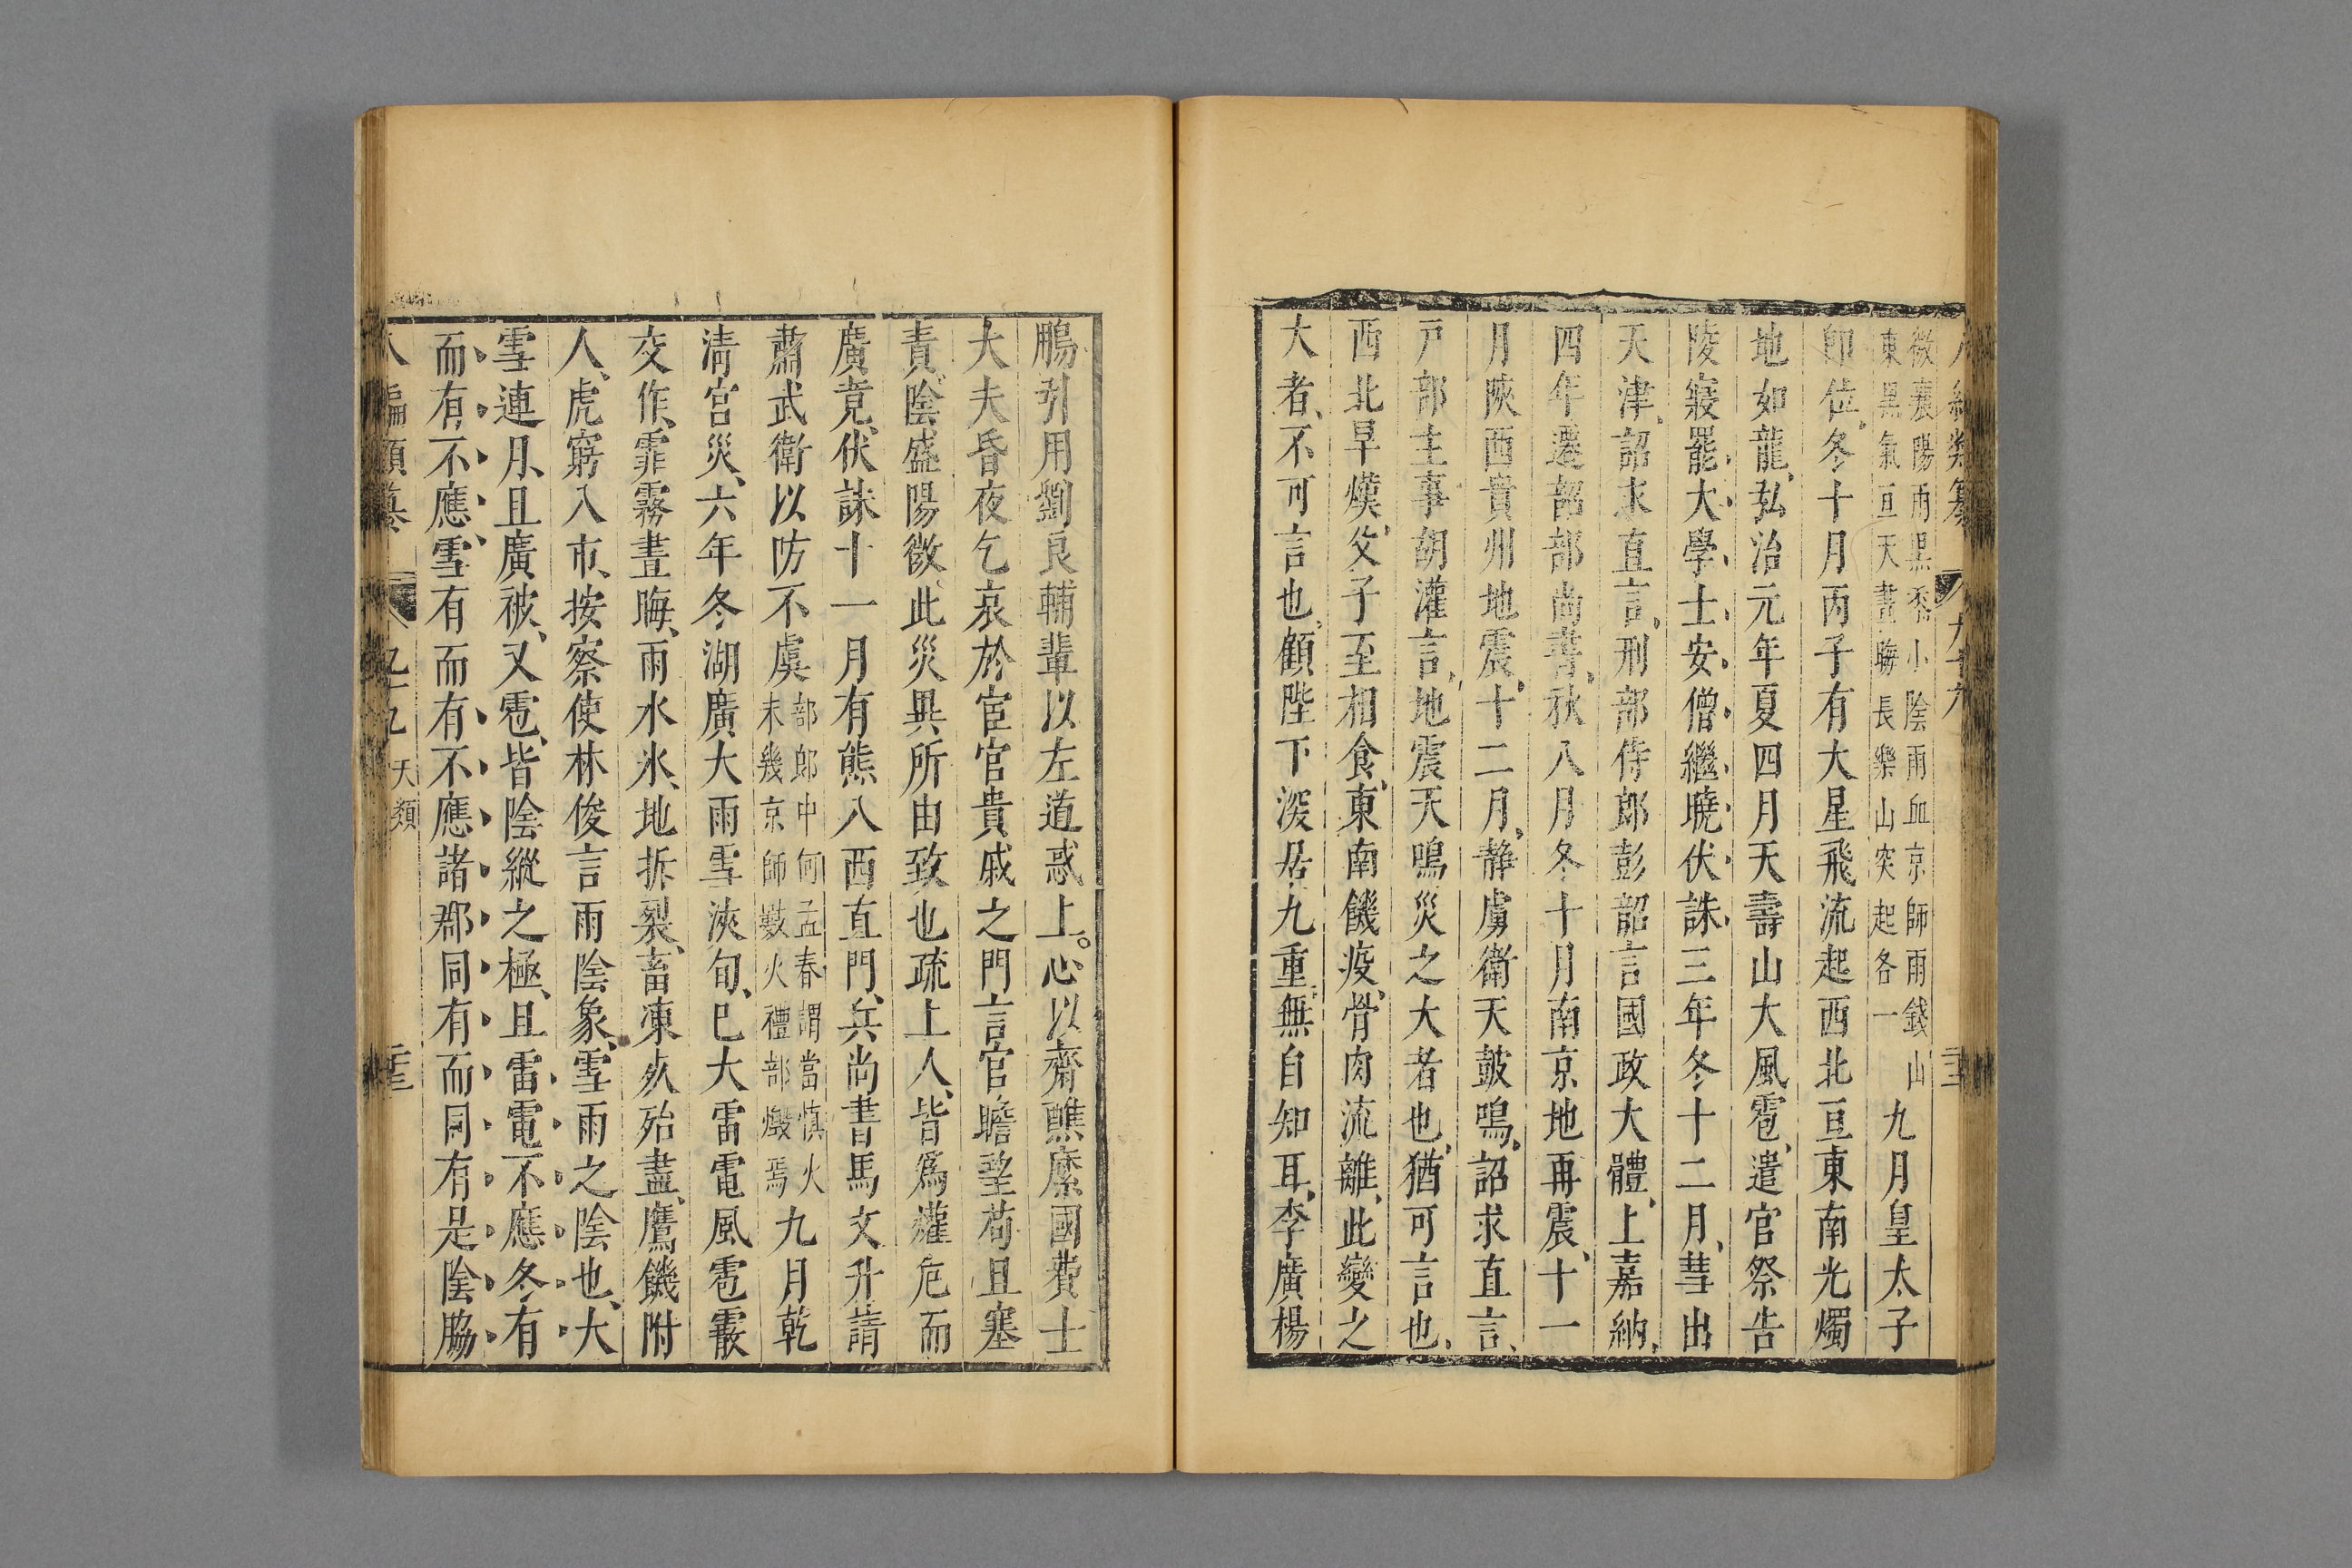 微襄陽雨黑黍小陰雨血京師雨錢山
東黑氣亘天晝晦長樂山突起各一
九月皇太子
即位冬十月丙子有大星飛流起西北亘東南光燭
地如龍弘治元年夏四月天壽山大風雹遣官祭告
陵寢罷大學士安僧繼曉伏誅三年冬十二月彗出
天津詔求直言刑部侍郎彭韶言國政大體上嘉納
四年遷韶部尚書秋八月冬十月南京地再震十一
月陝西貴州地震十二月靜虜衛天鼓鳴詔求直言
戸部主事胡灌言地震天鳴災之大者也猶可言也
西北旱熯父子至相食東南饑疫骨肉流離此變之
大者不可言也顧陛下深居九重無自知耳李廣楊
鵬引用劉良輔輩以左道惑上心以齋醮糜國費士
大夫昏夜乞哀於宦官貴戚之門言官瞻望苟且塞
責陰盛陽微此災異所由致也疏上人皆爲灌危而
廣竟伏誅十一月有熊入西直門兵尚書馬文升請
肅武衛以防不虞
部郎中何孟春謂當慎火
未幾京師數火禮部燬焉
九月乾
清宮災六年冬湖廣大雨雪浹旬巳大雷電風雹霰
交作霏霧晝晦雨水氷地拆裂畜凍死殆盡鷹饑附
人虎窮入市按察使林俊言雨陰象雪雨之陰也大
雪連月且廣被又雹皆陰縱之極且雷電不應冬有
而有不應雪有而有不應諸郡同有而同有是陰脇
八編類纂
九十九
天類